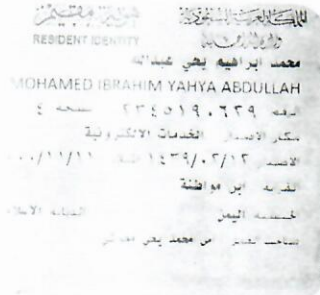 المملكة العربية السعودية
وزارة الداخلية
هوية مقيم
RESIDENT IDENTITY
محمد ابراهيم يحي عبدالله
MOHAMED IBRAHIM YAHYA ABDULLAH
الرقم ٢٣٤٥١٩٠٦٢٩ نسخة ٤
مكان الاصدار الخدمات الالكترونية
١٤٣٩/٠٢/١٢
ابن مواطنة
اليمن
صاحب العمل
محمد يحي